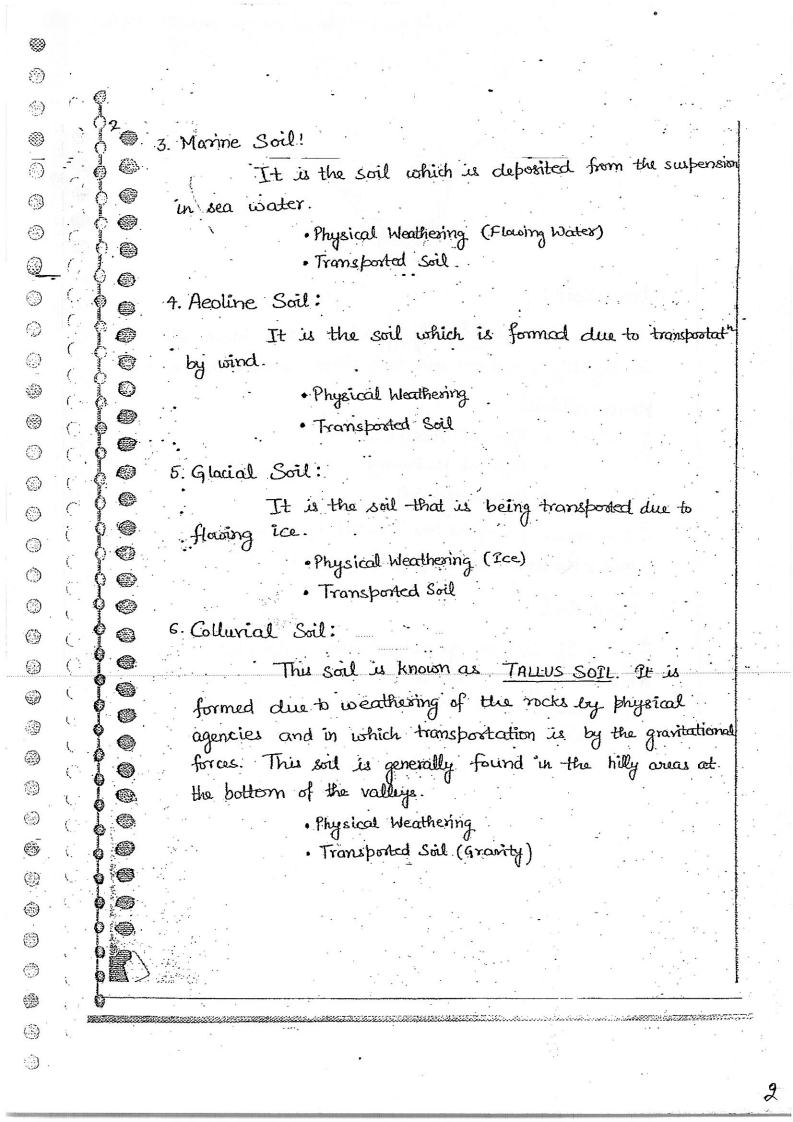 2
3. Marine Soil!
It is the soil which is deposited from the suspension
in sea water.
• Physical Weathering (Flowing Water)
• Transported Soil.
4. Aeoline Soil:
It is the soil which is formed due to transportatⁿ
by wind.
• Physical Weathering
• Transported Soil
5. Glacial Soil:
It is the soil that is being transported due to
flowing ice.
• Physical Weathering (Ice)
• Transported Soil
6. Colluvial Soil:
This soil is known as TALLUS SOIL. It is
formed due to weathering of the rocks by physical
agencies and in which transportation is by the gravitational
forces. This soil is generally found in the hilly areas at
the bottom of the valleys.
• Physical Weathering
• Transported Soil (Gravity)
2